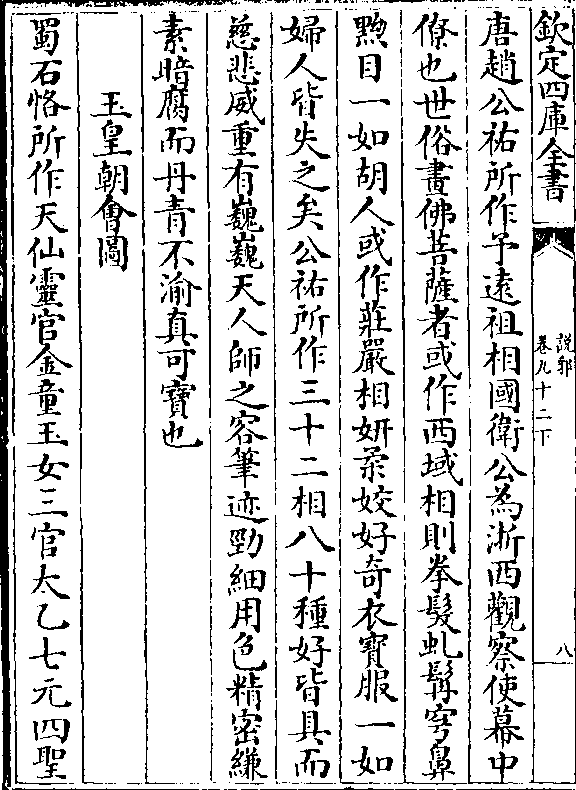 欽定四庫全書
說郛
卷九十二下
八
唐趙公祐所作予遠祖相國衛公為浙西觀察使幕中
僚也世俗畫佛菩薩者或作西域相則拳髮虬髯穹鼻
黝目一如胡人或作莊嚴相妍柔姣好奇衣寶服一如
婦人皆失之矣公祐所作三十二相八十種好皆具而
慈悲威重有巍巍天人師之容筆迹勁細用色精密縑
素暗腐而丹青不渝真可寶也
玉皇朝會圖
蜀石恪所作天仙靈官金童玉女三官太乙七元四聖